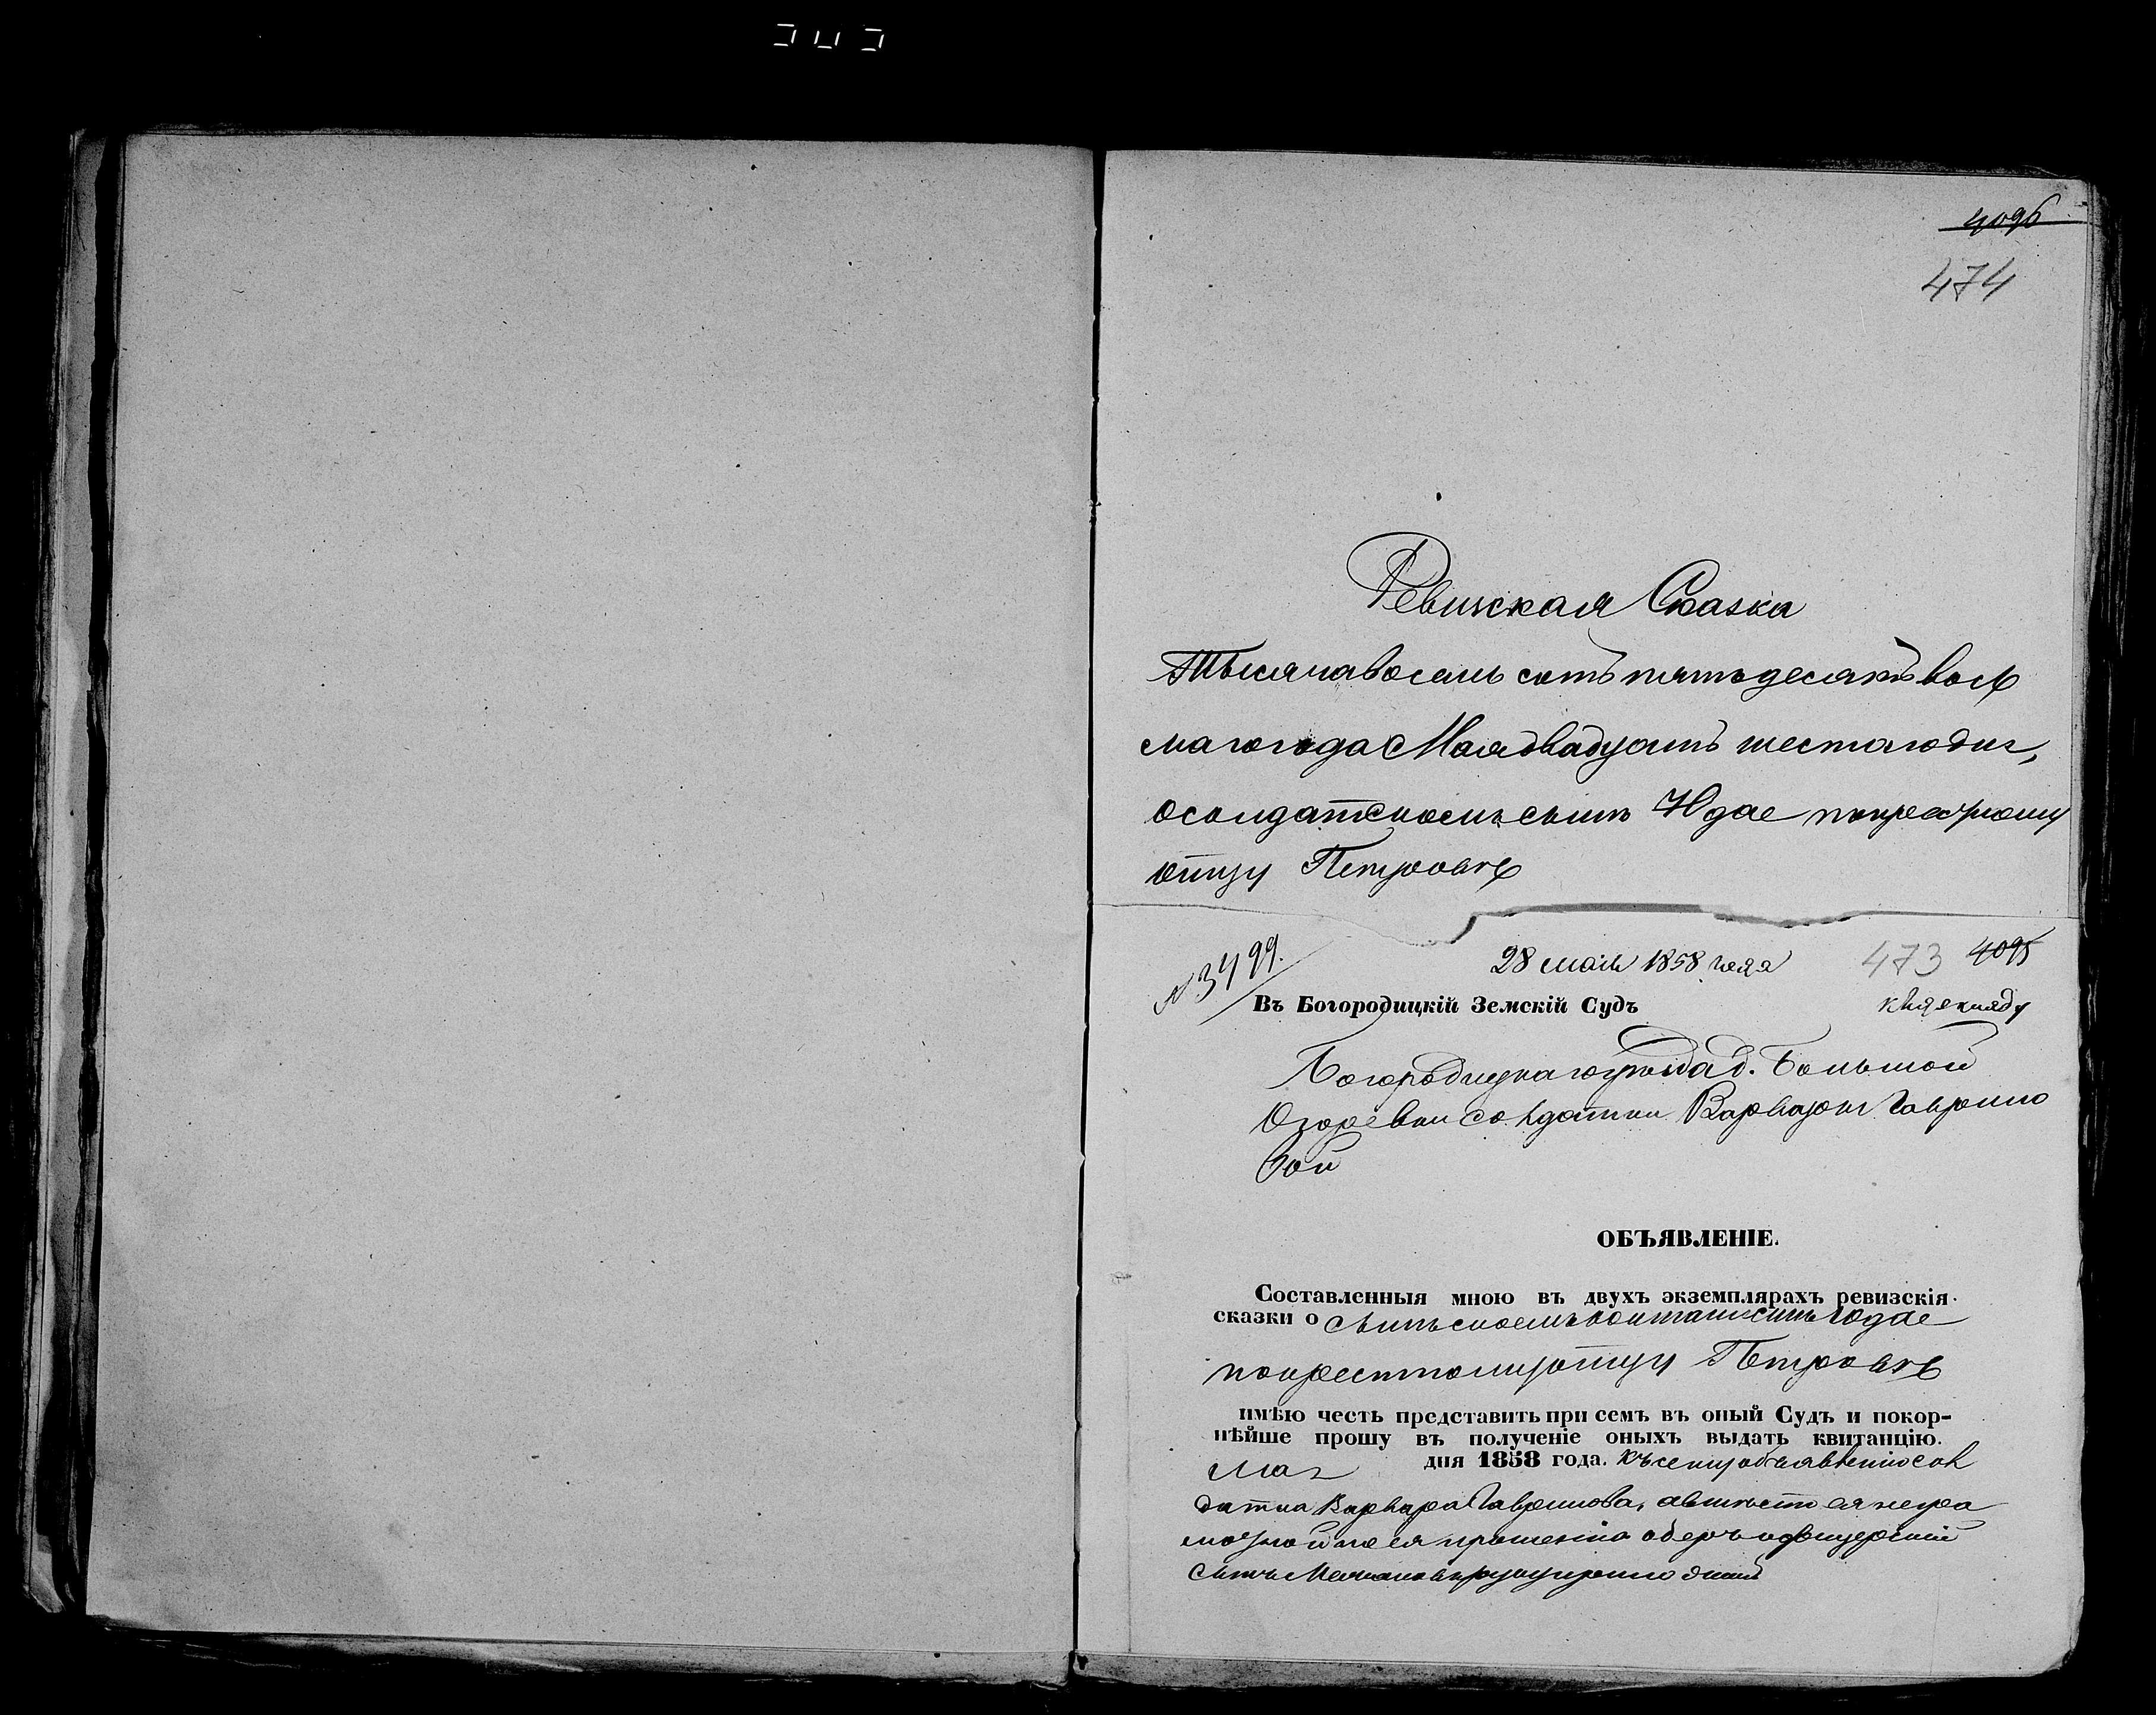 4096
474
Ревизская Сказка
Тысяча восемь сотъ пятьдесятъ вось
маго года Мая двадцать шестаго дня,
о солдатскомъ сынѣ Юдае покрестному
отцу Петровѣ
№ 3499.
28 маия 1858 года
473 4095
Въ Богородицкій Земскій Судъ
Богородицкаго уѣзда д. Большой
Огаревки солдатки Варвары Гаврило
вой
ОБЪЯВЛЕНІЕ.
Составленныя мною въ двухъ экземплярахъ ревизскія
сказки о сынѣ моемъ Юдае
покрестному отцу Петровѣ
имѣю честь представить при семъ въ оный Судъ и покор-
нѣйше прошу въ полученіе оныхъ выдать квитанцію.
Мая дня 1858 года. Къ сему объявленію сол
датка Варвара Гаврилова, а вмѣсто ея негра
мотной по ея прошенію оберъ офицерскій
сынъ руку приложилъ